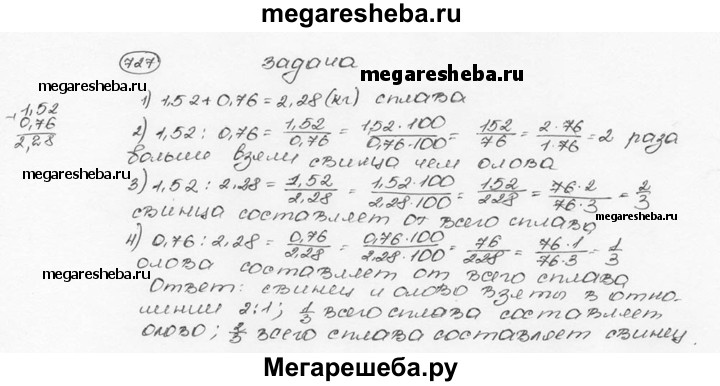 megaresheba.ru
727 задача
megaresheba.ru
megaresheba.ru
1) 1,52 + 0,76 = 2,28 (кг) сплава
+ 1,52
0,76
2,28
2) 1,52 : 0,76 = 1,52/0,76 = 1,52·100/0,76·100 = 152/76 = 2·76/1·76 = 2 раза
больше взяли свинца чем олова
megaresheba.ru
3) 1,52 : 2,28 = 1,52/2,28 = 1,52·100/2,28·100 = 152/228 = 76·2/76·3 = 2/3
свинца составляет от всего сплава
megaresheba.ru
4) 0,76 : 2,28 = 0,76/2,28 = 0,76·100/2,28·100 = 76/228 = 76·1/76·3 = 1/3
олова составляет от всего сплава
megaresheba.ru
Ответ: свинец и олово взяты в отно-
шении 2:1; 1/3 всего сплава составляет
megaresheba.ru
олово; 2/3 всего сплава составляет свинец.
Мегарешеба.ру